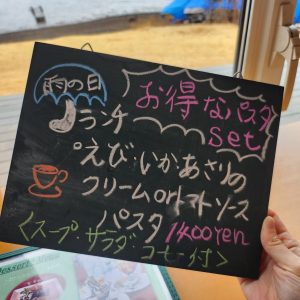 雨の日
ランチ
お得なパスタ
set
°えび・いか・あさりの
クリームorトマトソース
パスタ 1400yen
<スープ・サラダ・コーヒー付>